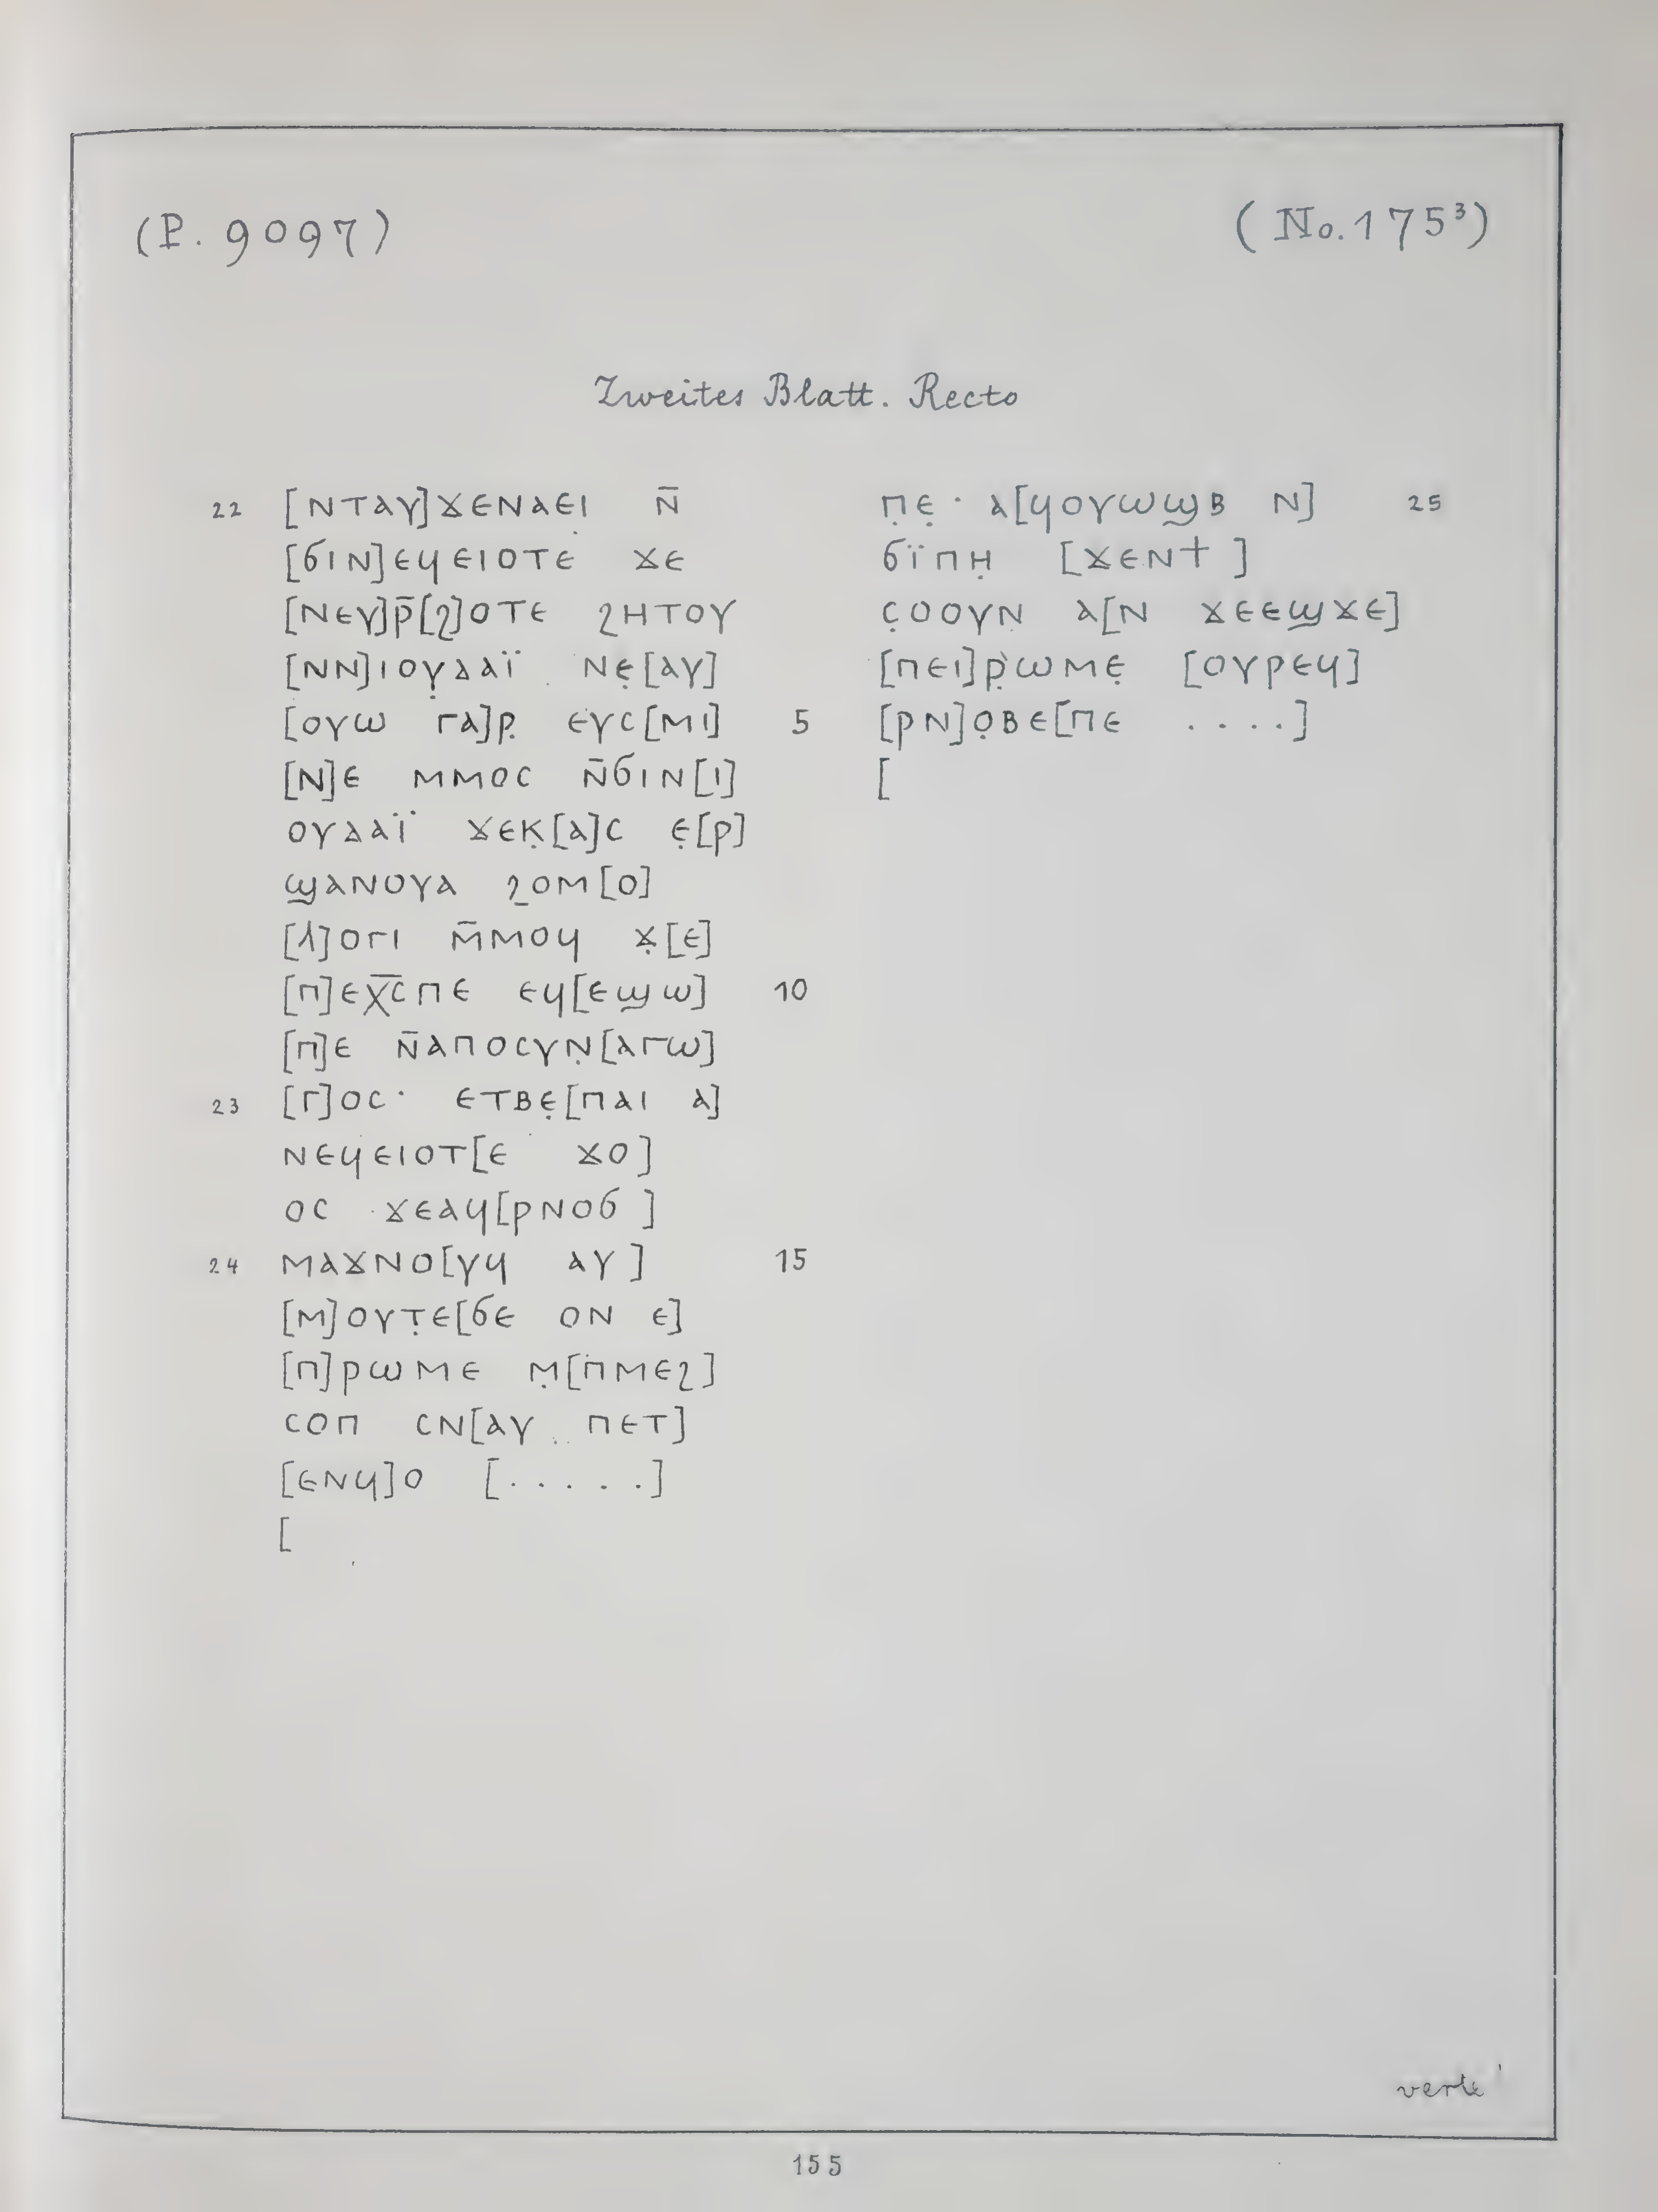 (P. 9097)
(No. 175³)
Zweites Blatt. Recto
22 [ⲛⲧⲁⲩ]ϫⲉⲛⲁⲉⲓ ⲛ̄
[ϭⲓⲛ]ⲉϥⲉⲓⲟⲧⲉ ϫⲉ
[ⲛⲉⲩ]ⲣ̄[ϩ]ⲟⲧⲉ ϩⲏⲧⲟⲩ
[ⲛⲛ]ⲓⲟⲩ̣ⲇⲁⲓ̈ ⲛⲉ̣[ⲁⲩ]
[ⲟⲩⲱ ⲅⲁ]ⲣ̣ ⲉⲩⲥ[ⲙⲓ] 5
[ⲛ]ⲉ ⲙⲙⲟⲥ ⲛ̄ϭⲓⲛ[ⲓ]
ⲟⲩⲇⲁⲓ̈ ϫⲉⲕ̣[ⲁ]ⲥ ⲉ̣[ⲣ]
ϣⲁⲛⲟⲩⲁ ϩⲟⲙ[ⲟ]
[ⲗ]ⲟⲅⲓ ⲙ̄ⲙⲟϥ ϫ̣[ⲉ]
[ⲡ]ⲉⲭ̄ⲥ̄ⲡⲉ ⲉϥ[ⲉϣⲱ] 10
[ⲡ]ⲉ ⲛ̄ⲁⲡⲟⲥⲩⲛ̣[ⲁⲅⲱ]
23 [ⲅ]ⲟⲥ· ⲉⲧⲃⲉ̣[ⲡⲁⲓ ⲁ]
ⲛⲉϥⲉⲓⲟⲧ[ⲉ ϫⲟ]
ⲟⲥ ϫⲉⲁϥ[ⲣⲛⲟϭ ]
24 ⲙⲁϫⲛⲟ[ⲩϥ ⲁⲩ ] 15
[ⲙ]ⲟⲩⲧ̣ⲉ[ϭⲉ ⲟⲛ ⲉ]
[ⲡ]ⲣⲱⲙⲉ ⲙ̣[ⲡⲙⲉϩ]
ⲥⲟⲡ ⲥⲛ[ⲁⲩ ⲡⲉⲧ]
[ⲉⲛϥ]ⲟ [. . . . .]
[
ⲡ̣ⲉ̣· ⲁ[ϥⲟⲩⲱϣⲃ ⲛ] 25
ϭⲓ̈ⲡⲏ̣ [ϫⲉⲛϯ ]
ⲥ̣ⲟⲟⲩⲛ̣ ⲁ[ⲛ ϫⲉⲉϣϫⲉ]
[ⲡⲉⲓ]ⲣ̣ⲱⲙⲉ̣ [ⲟⲩⲣⲉϥ]
[ⲣⲛ]ⲟ̣ⲃⲉ[ⲡⲉ . . . .]
[
verte
155